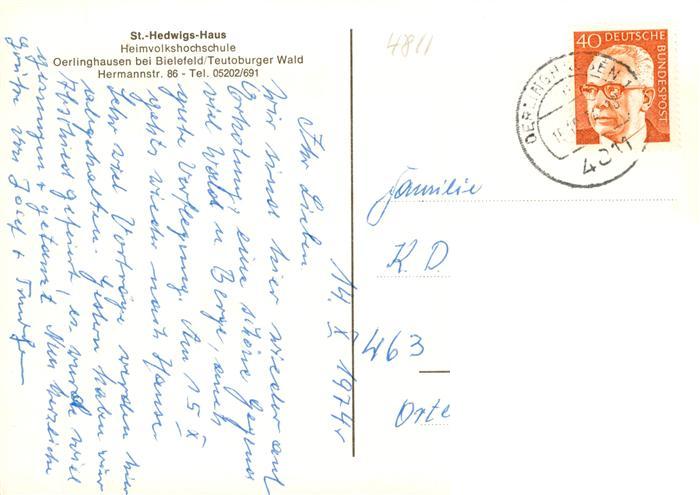 St.-Hedwigs-Haus
Heimvolkshochschule
Oerlinghausen bei Bielefeld/Teutoburger Wald
Hermannstr. 86 - Tel. 05202/691
14. X 1974
Ihr Lieben
Wir sind hier wieder auf
Erholung, eine schöne Gegend
viel Wald u Berge, auch
gute Verflegung. Am 15 X
gehts wieder nach Hause
Sehr viel Vorträge werden hier
abgehalten. Gestern haben wir
Abschied gefeiert, es wurde viel
gesungen + getanzt Nun herzliche
Grüße von Josef +
4811
40 DEUTSCHE
BUNDESPOST
4811
Familie
K. D.
463
Orte